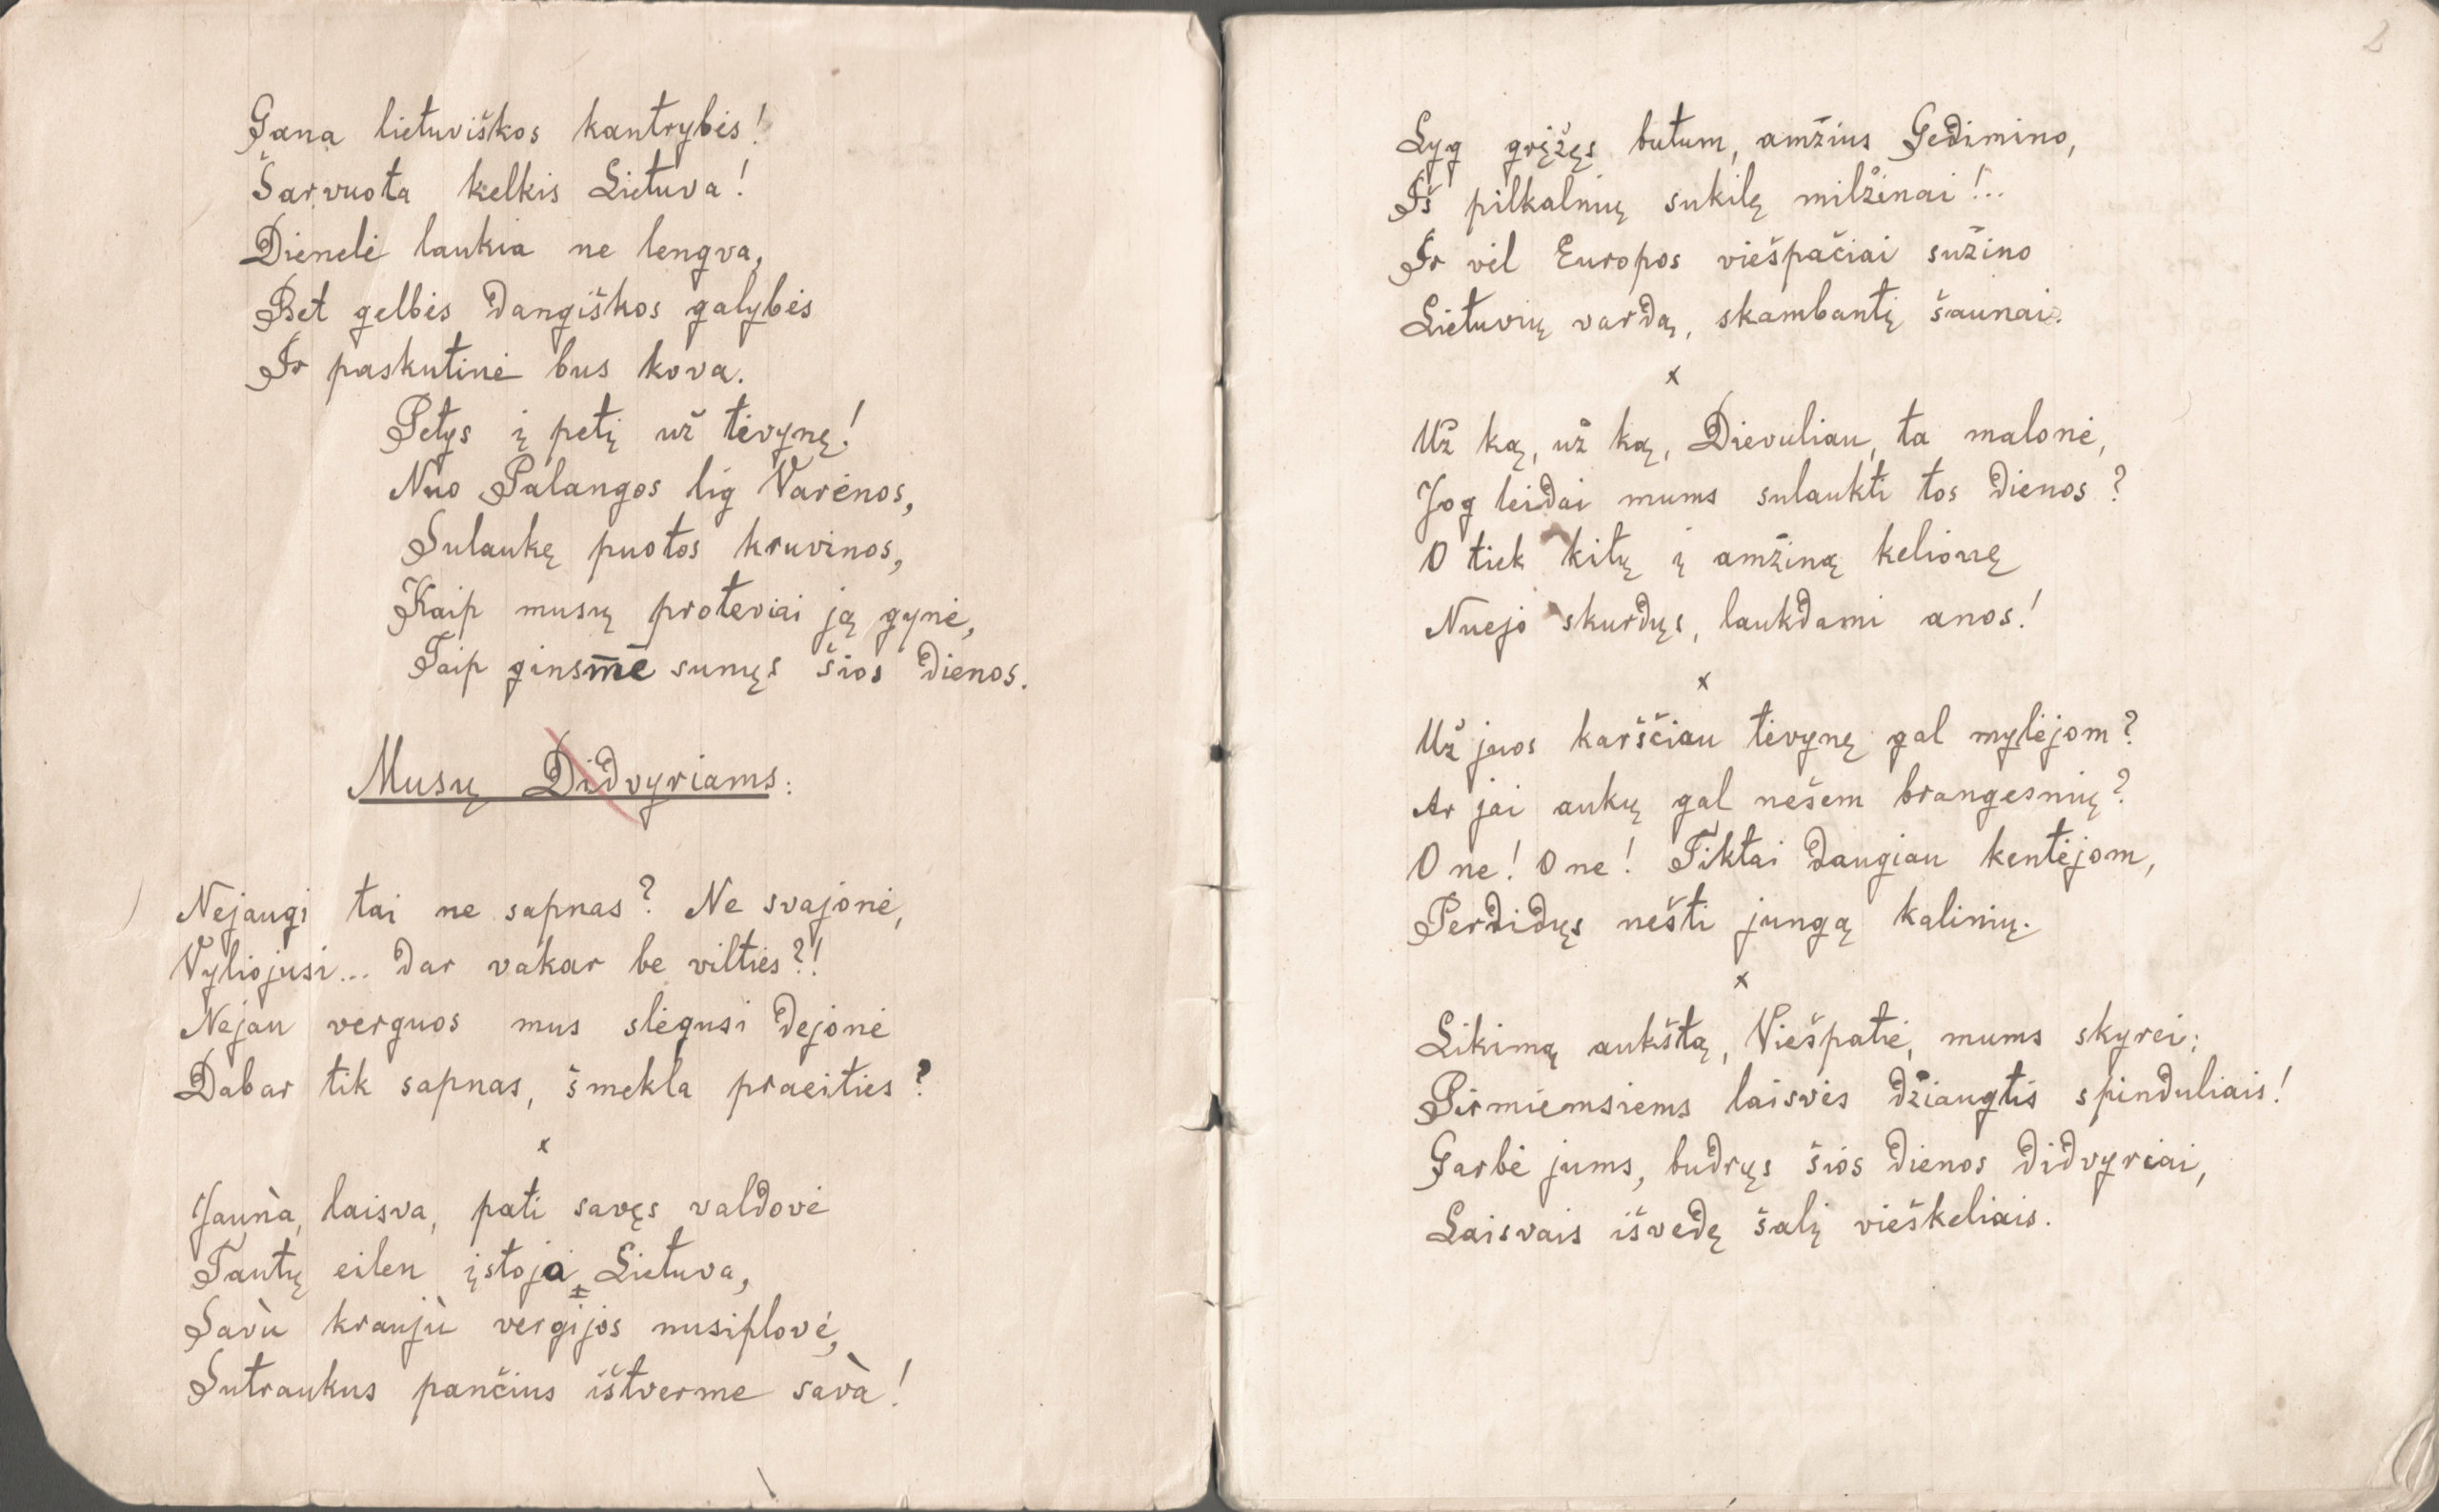 Gana lietuviškos kantrybės!
Šarvuota kelkis Lietuva!
Dienelė laukia ne lengva,
Bet gelbės dangiškos galybės
Ir paskutinė bus kova.
Petys į petį už tėvynę!
Nuo Palangos lig Varėnos,
Sulaukę puotos kruvinos,
Kaip musų proteviai ją gynė,
Taip ginsmė sunųs šios dienos.
Musų Didvyriams:
Nejaugi tai ne sapnas? Ne svajonė,
Vyliojusi... dar vakar be vilties?!
Nejau verguos mus slėgusi dejonė
Dabar tik sapnas, šmekla praeities?
x
Jaunà, laisva, pati savęs valdovė
Tautų eilen įstoja Lietuva,
Savù kraujù vergijos nusiplovė,
Sutraukus pančius ištverme savà!
2
Lyg grįžęs butum, amžius Gedimino,
Iš pilkalnių sukilę milžinai!..
Ir vėl Europos viešpačiai sužino
Lietuvių vardą, skambantį šaunai.
x
Už ką, už ką, Dievuliau, ta malonė,
Jog leidai mums sulaukti tos dienos?
O tiek kitų į amžiną kelionę
Nuejo skurdųs, laukdami anos!
x
Už juos karščiau tėvynę gal mylėjom?
Ar jai aukų gal nešem brangesnių?
O ne! O ne! Tiktai daugiau kentėjom,
Perdidųs nešti jungą kalinių.
x
Likimą aukštą, Viešpatie, mums skyrei;
Pirmiemsiems laisvės džiaugtis spinduliais!
Garbė jums, budrųs šios dienos didvyriai,
Laisvais išvedę šalį vieškeliais.